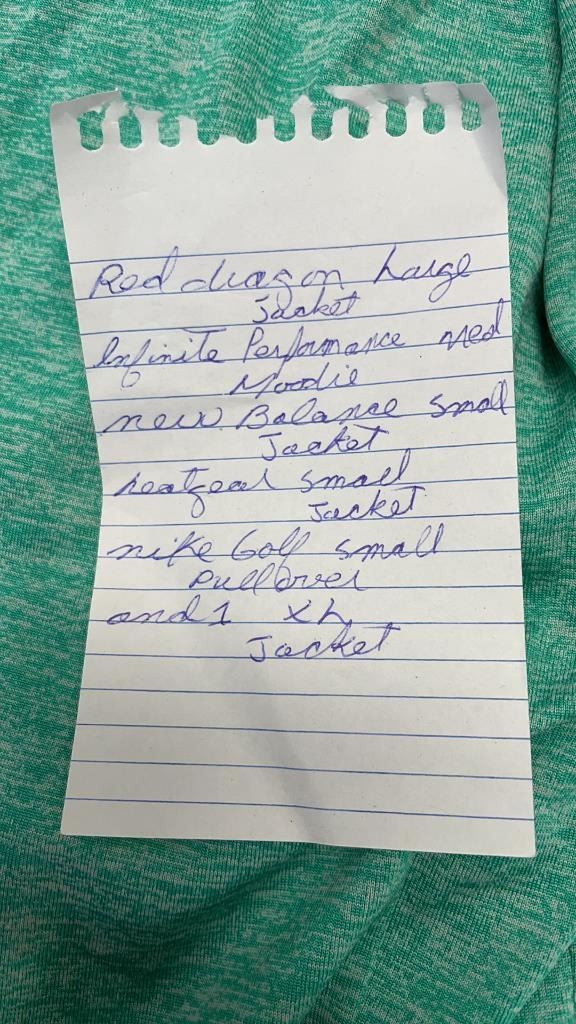 Red dragon Large
Jacket
Infinite Performance Med
Hoodie
new Balance small
Jacket
heatgear small
Jacket
nike Golf small
Pullover
and1 XL
Jacket